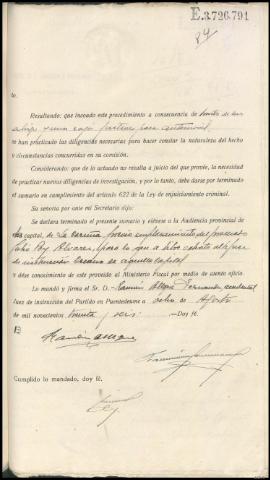 E.3.726.791
84
to.
Resultando: que incoado este procedimiento a consecuencia de
se han practicado las diligencias necesarias para hacer constar la naturaleza del hecho
y circunstancias concurridas en su comisión.
Considerando: que de lo actuado no resulta a juicio del que provée, la necesidad
de practicar nuevas diligencias de investigación, y por lo tanto, debe darse por terminado
el sumario en cumplimiento del artículo 622 de la Ley de enjuiciamiento criminal.
Su señoría por ante mi Secretario dijo:
Se declara terminado el presente sumario y elévese a la Audiencia provincial de
la capital, de La Coruña previo emplazamiento del procesado
Julio Alvarez, para lo que se libre
de instrucción de aquella capital
y dése conocimiento de este proveido al Ministerio Fiscal por medio de oportuno oficio.
Lo mandó y firma el Sr. D. Ramón Fernandez accidental
Juez de instrucción del Partido en Puentedeume a ocho de Agosto
de mil novecientos treinta y seis.—Doy fé.
Cumplido lo mandado, doy fé.